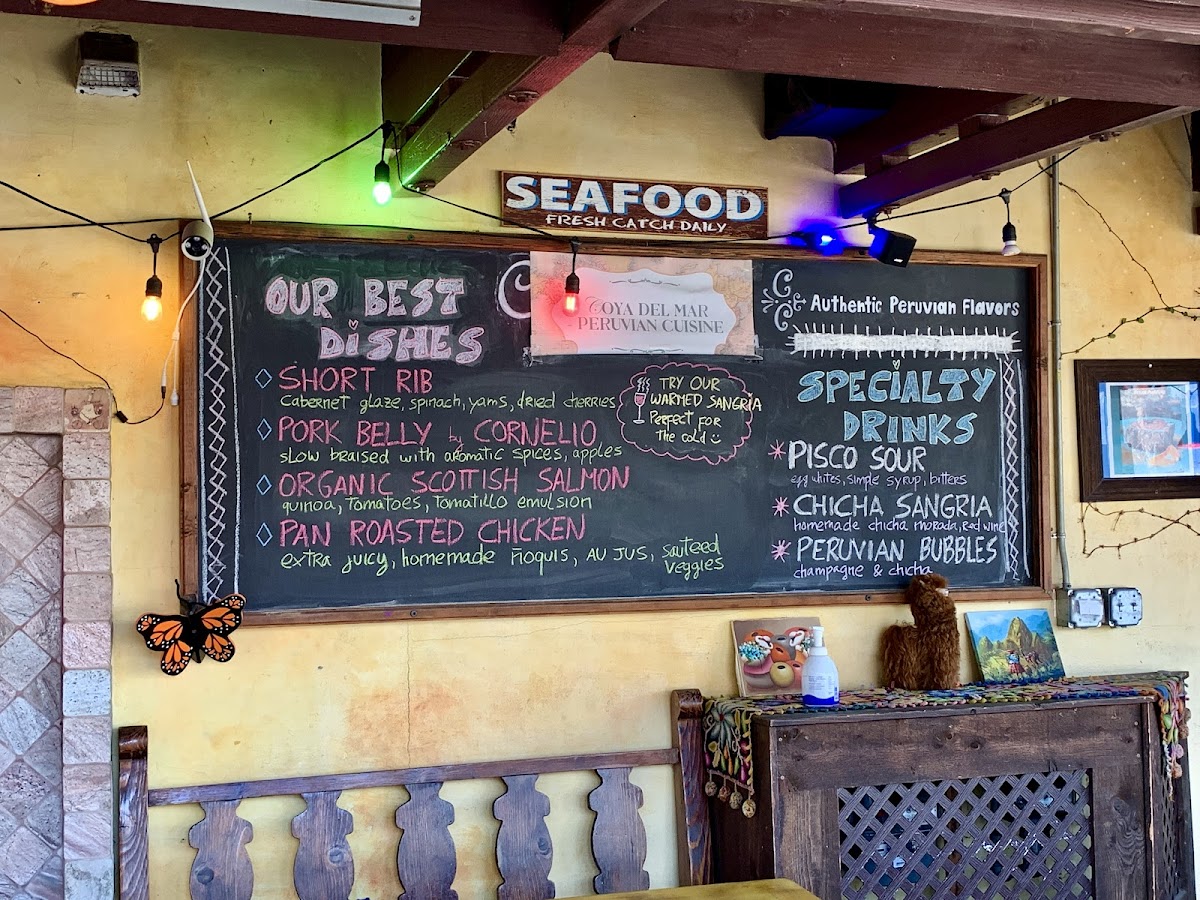 SEAFOOD
FRESH CATCH DAILY
OUR BEST
DiSHES
COYA DEL MAR
PERUVIAN CUISINE
Authentic Peruvian Flavors
SHORT RIB
Cabernet glaze, spinach, yams, dried cherries
PORK BELLY by CORNELIO
slow braised with aromatic spices, apples
ORGANIC SCOTTISH SALMON
quinoa, Tomatoes, Tomatillo emulsion
PAN ROASTED CHICKEN
extra juicy, homemade ñoquis, AU JUS, sauteed
veggies
TRY OUR
WARMED SANGRIA
Perfect FOR
The cold
SPECiALTY
DRiNKS
PISCO SOUR
egg whites, simple syrup, bitters
CHICHA SANGRIA
homemade chicha morada, Red wine
PERUVIAN BUBBLES
champagne & chicha